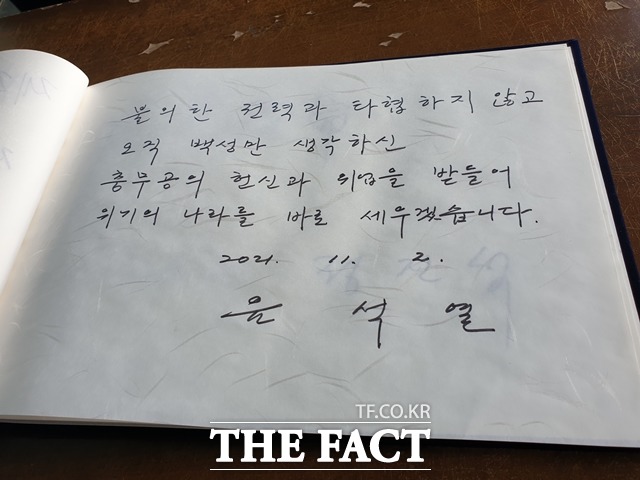 불의한 권력과 타협하지 않고
오직 백성만 생각하신
충무공의 헌신과 위업을 받들어
위기의 나라를 바로 세우겠습니다.
2021. 11. 2.
윤 석 열
TF.CO.KR
THE FACT